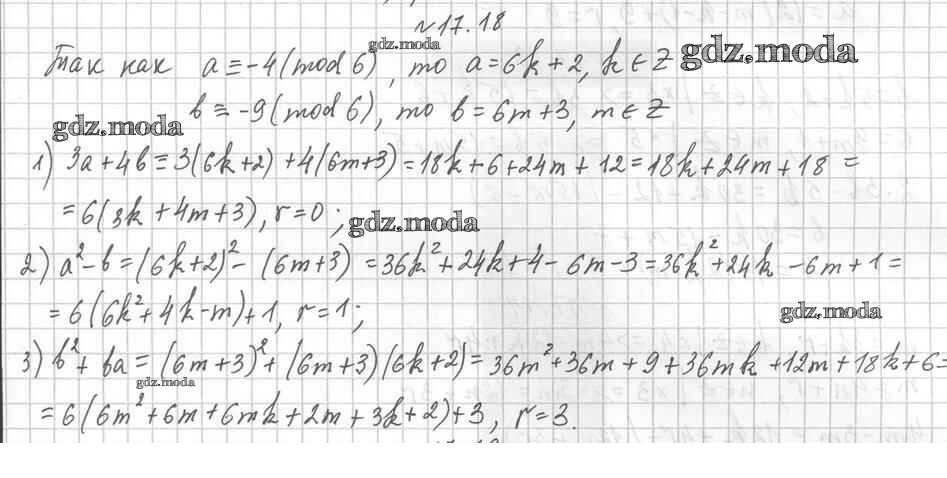 №17.18
Так как a ≡ -4 (mod 6), то a = 6k + 2, k ∈ Z
b ≡ -9 (mod 6), то b = 6m + 3, m ∈ Z
1) 3a + 4b ≡ 3(6k+2) + 4(6m+3) = 18k + 6 + 24m + 12 = 18k + 24m + 18 =
= 6(3k + 4m + 3), r = 0;
2) a² - b = (6k+2)² - (6m+3) = 36k² + 24k + 4 - 6m - 3 = 36k² + 24k - 6m + 1 =
= 6(6k² + 4k - m) + 1, r = 1;
3) b² + ba = (6m+3)² + (6m+3)(6k+2) = 36m² + 36m + 9 + 36mk + 12m + 18k + 6 =
= 6(6m² + 6m + 6mk + 2m + 3k + 2) + 3, r = 3.
gdz.moda
gdz.moda
gdz.moda
gdz.moda
gdz.moda
gdz.moda